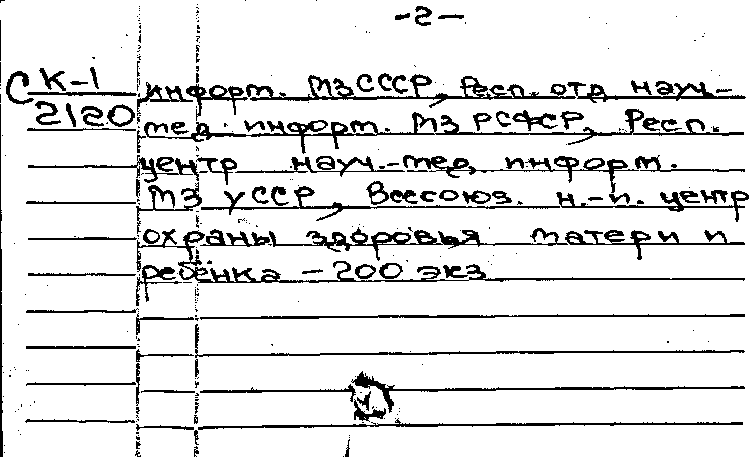 -2-
СК-1
2120
информ. МЗ СССР, Респ. отд науч-
мед. информ. МЗ РСФСР, Респ.
центр науч.-мед. информ.
МЗ УССР, Всесоюз. н.-и. центр
охраны здоровья матери и
ребёнка - 200 экз